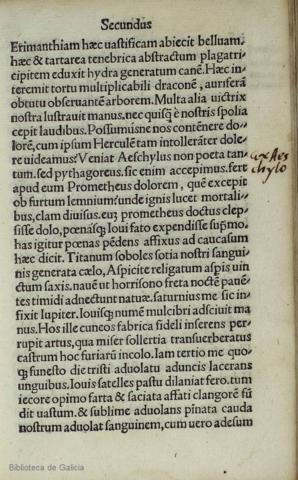 Secundus
Erimanthiam hæc uastificam abiecit belluam.
hæc & tartarea tenebrica abstractum plagatri⸗
cipitem eduxit hydra generatum canē. Hæc in⸗
teremit tortu multiplicabili draconē, auriferā
obtutu obseruantē arborem. Multa alia uictrix
nostra lustrauit manus. nec quisq̃ ẽ nostris spolia
cepit laudibus. Possumusne nos contēnere do⸗
lorē, cum ipsum Herculē tam intollerāter dole⸗
re uideamus? Veniat Aeschylus non poeta tan⸗
tum. sed pythagoreus. sic enim accepimus. fert
apud eum Prometheus dolorem, quē excepit
ob furtum lemnium? unde ignis lucet mortali⸗
bus, clam diuisus. eūq; prometheus doctus clep⸗
sisse dolo, pœnasq; Ioui fato expendisse supr̃mo.
has igitur pœnas pēdens affixus ad caucasum
hæc dicit. Titanum soboles sotia nostri sangui⸗
nis generata cælo, Aspicite religatum aspis uin⸗
ctum saxis. nauē ut horrisono freta noctē pauē⸗
tes timidi adnectunt natuæ. saturnius me sic in⸗
fixit Iupiter. Iouisq; numē mulcibri adsciuit ma
nus. Hos ille cuneos fabrica fideli inserens per⸗
rupit artus, qua miser sollertia transuerberatus
castrum hoc furiarū incolo. iam tertio me quo⸗
q; funesto die tristi aduolatu aduncis lacerans
unguibus. Iouis satelles pastu dilaniat fero. tum
iecore opimo farta & saciata affati clangorē fū
dit uastum. & sublime aduolans pīnata cauda
nostrum aduolat sanguinem, cum uero adesum
ex Aes
chylo
Biblioteca de Galicia